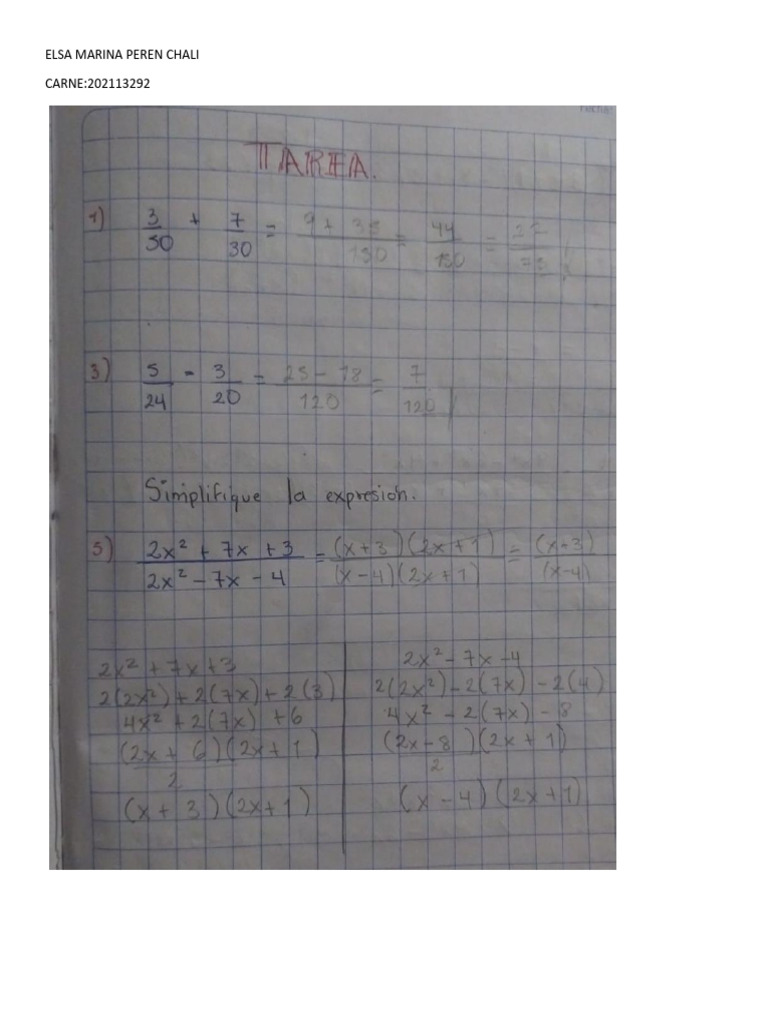 ELSA MARINA PEREN CHALI
CARNE:202113292
TAREA.
1) 3/50 + 7/30 = 9 + 35/150 = 44/150 = 22/75
3) 5/24 - 3/20 = 25 - 18/120 = 7/120
Simplifique la expresión.
5) 2x² + 7x + 3/2x² - 7x - 4 = (x+3)(2x+1)/(x-4)(2x+1) = (x+3)/(x-4)
2x² + 7x + 3
2(2x²) + 2(7x) + 2(3)
4x² + 2(7x) + 6
(2x + 6)(2x + 1)
2
(x + 3)(2x + 1)
2x² - 7x - 4
2(2x²) - 2(7x) - 2(4)
4x² - 2(7x) - 8
(2x - 8)(2x + 1)
2
(x - 4)(2x + 1)